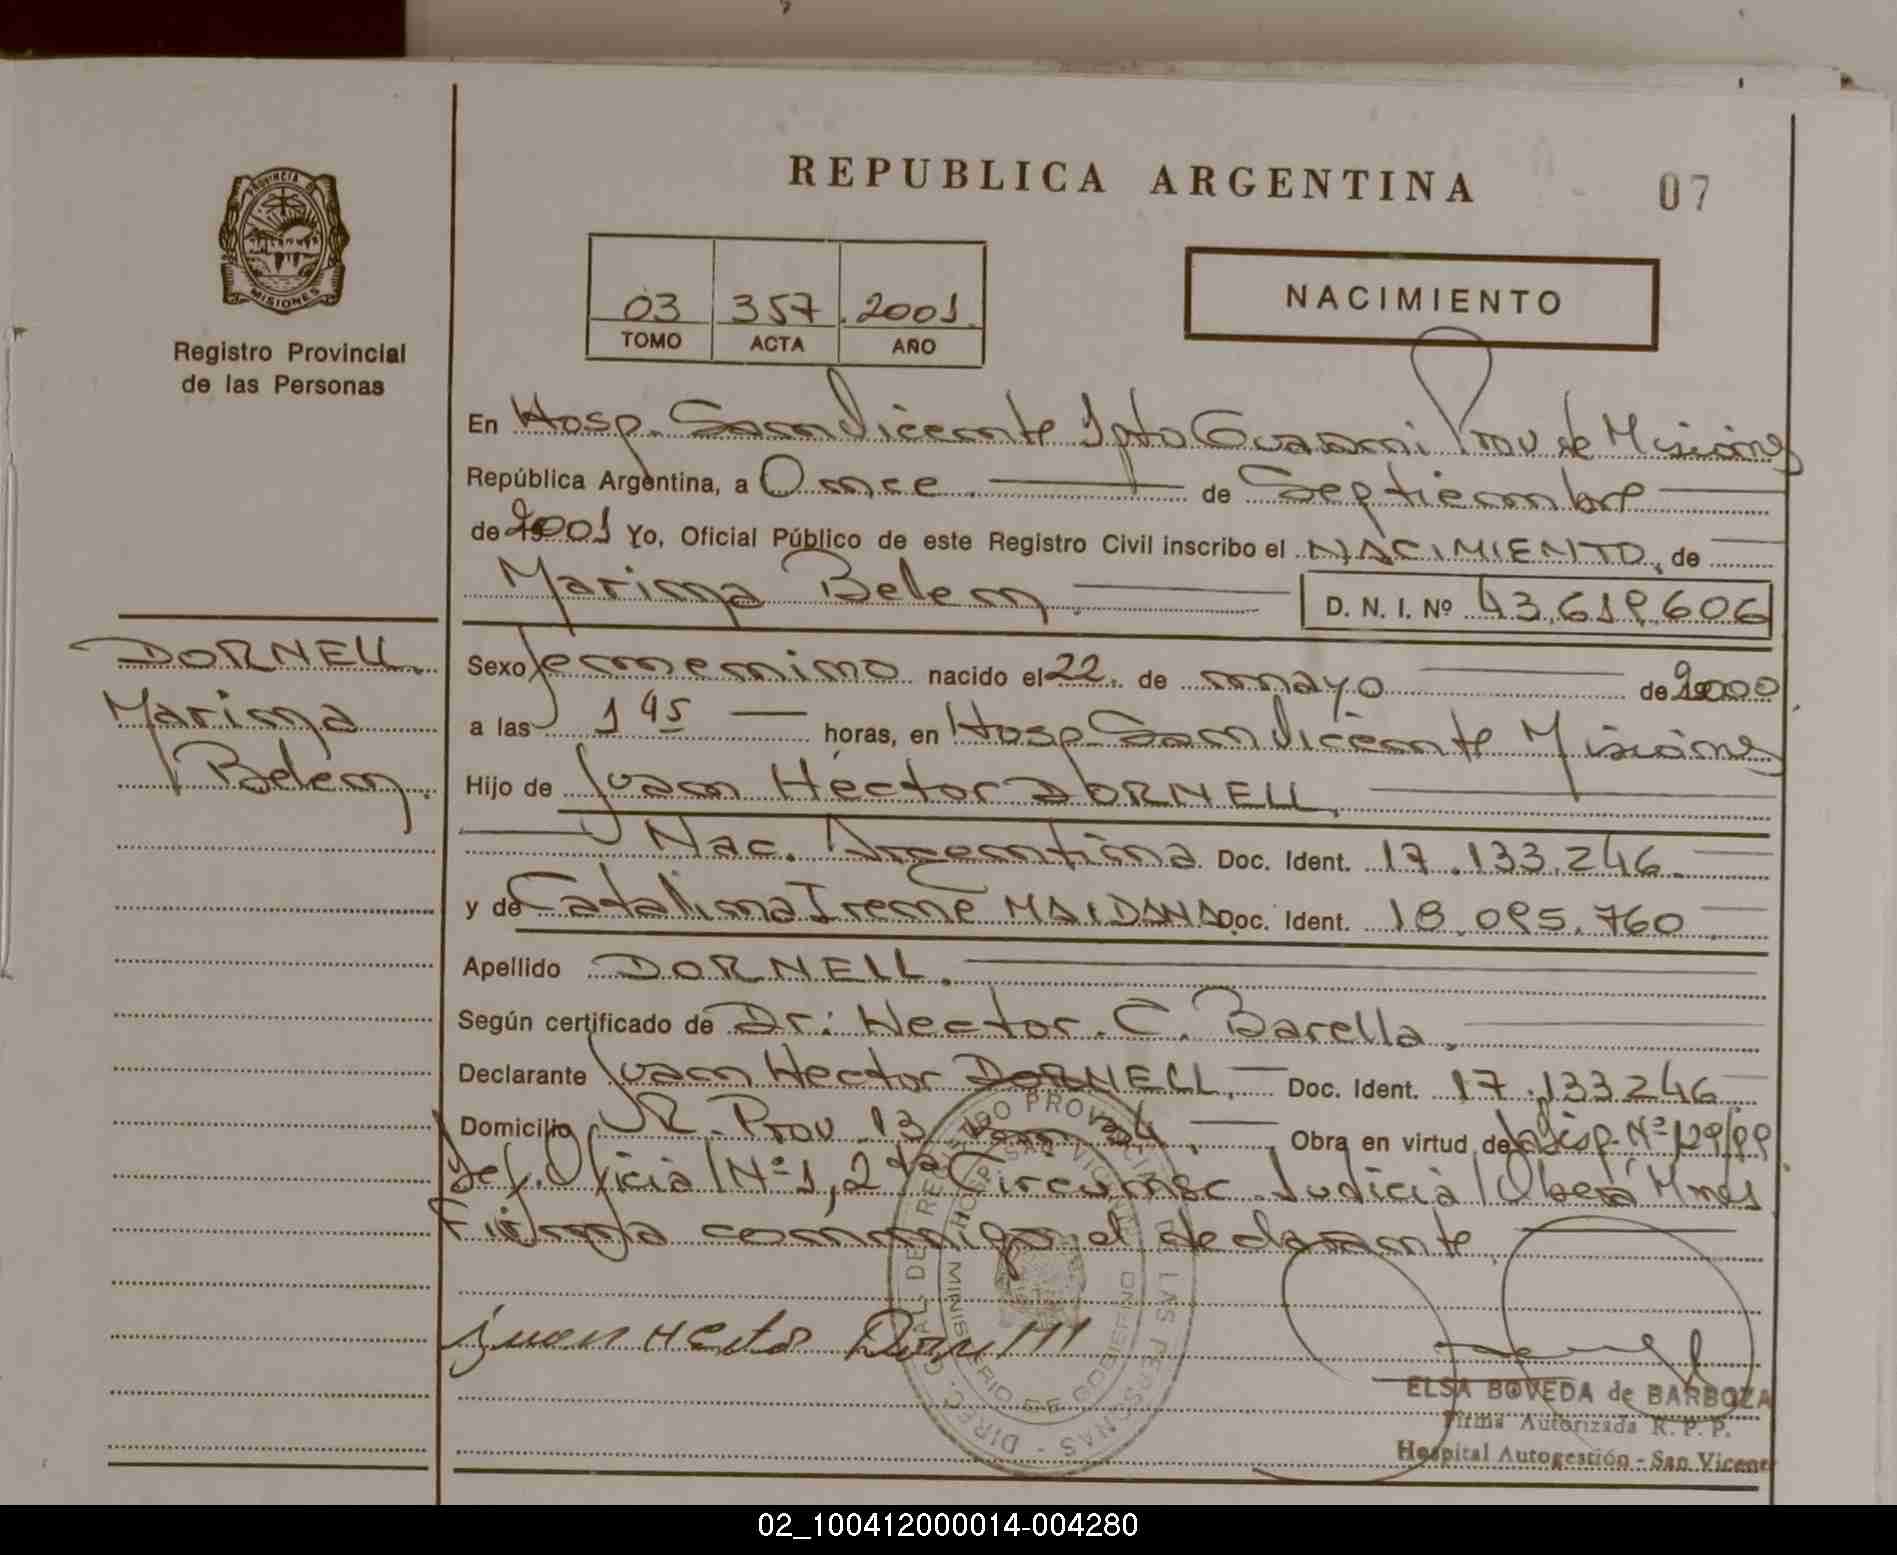 REPUBLICA ARGENTINA
07
PROVINCIA DE
MISIONES
Registro Provincial
de las Personas
03 357 2001
TOMO ACTA AÑO
NACIMIENTO
En Hosp. San Vicente Dpto Guarani Prov de Misiones
República Argentina, a Once de Septiembre
de 2001 Yo, Oficial Público de este Registro Civil inscribo el NACIMIENTO, de
Marina Belen. D. N. I. Nº 43.619.606
DORNELL.
Marina
Belén.
Sexo femenino nacido el 22. de mayo de 2000
a las 1 45 horas, en Hosp San Vicente Misiones
Hijo de Juan Héctor DORNELL.
Nac. Argentina. Doc. Ident. 17.133.246.
y de Catalina Irene MAIDANA Doc. Ident. 18.095.760
Apellido DORNELL.
Según certificado de Dr: Hector. C. Barella.
Declarante Juan Hector DORNELL. Doc. Ident. 17.133246
Domicilio R. Prov 13 Km 24. Obra en virtud de la Disp. Nº 129/99
Def. Oficial Nº 1, 2da Circunsc. Judicial Oberá Mnes
Firma conmigo el declarante.
Juan Hector Dornell
DIREC. GRAL. DE REGISTRO PROVINCIAL DE LAS PERSONAS
HOSP. SAN VICENTE
MINISTERIO DE GOBIERNO
ELSA BOVEDA de BARBOZA
Firma Autorizada R. P. P.
Hospital Autogestión - San Vicente
02_100412000014-004280